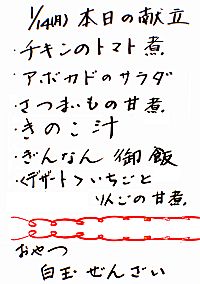 1/14(月)本日の献立
・チキンのトマト煮
・アボカドのサラダ
・さつまいもの甘煮
・きのこ汁
・ぎんなん御飯
<デザート>いちごと
りんごの甘煮
おやつ
白玉ぜんざい